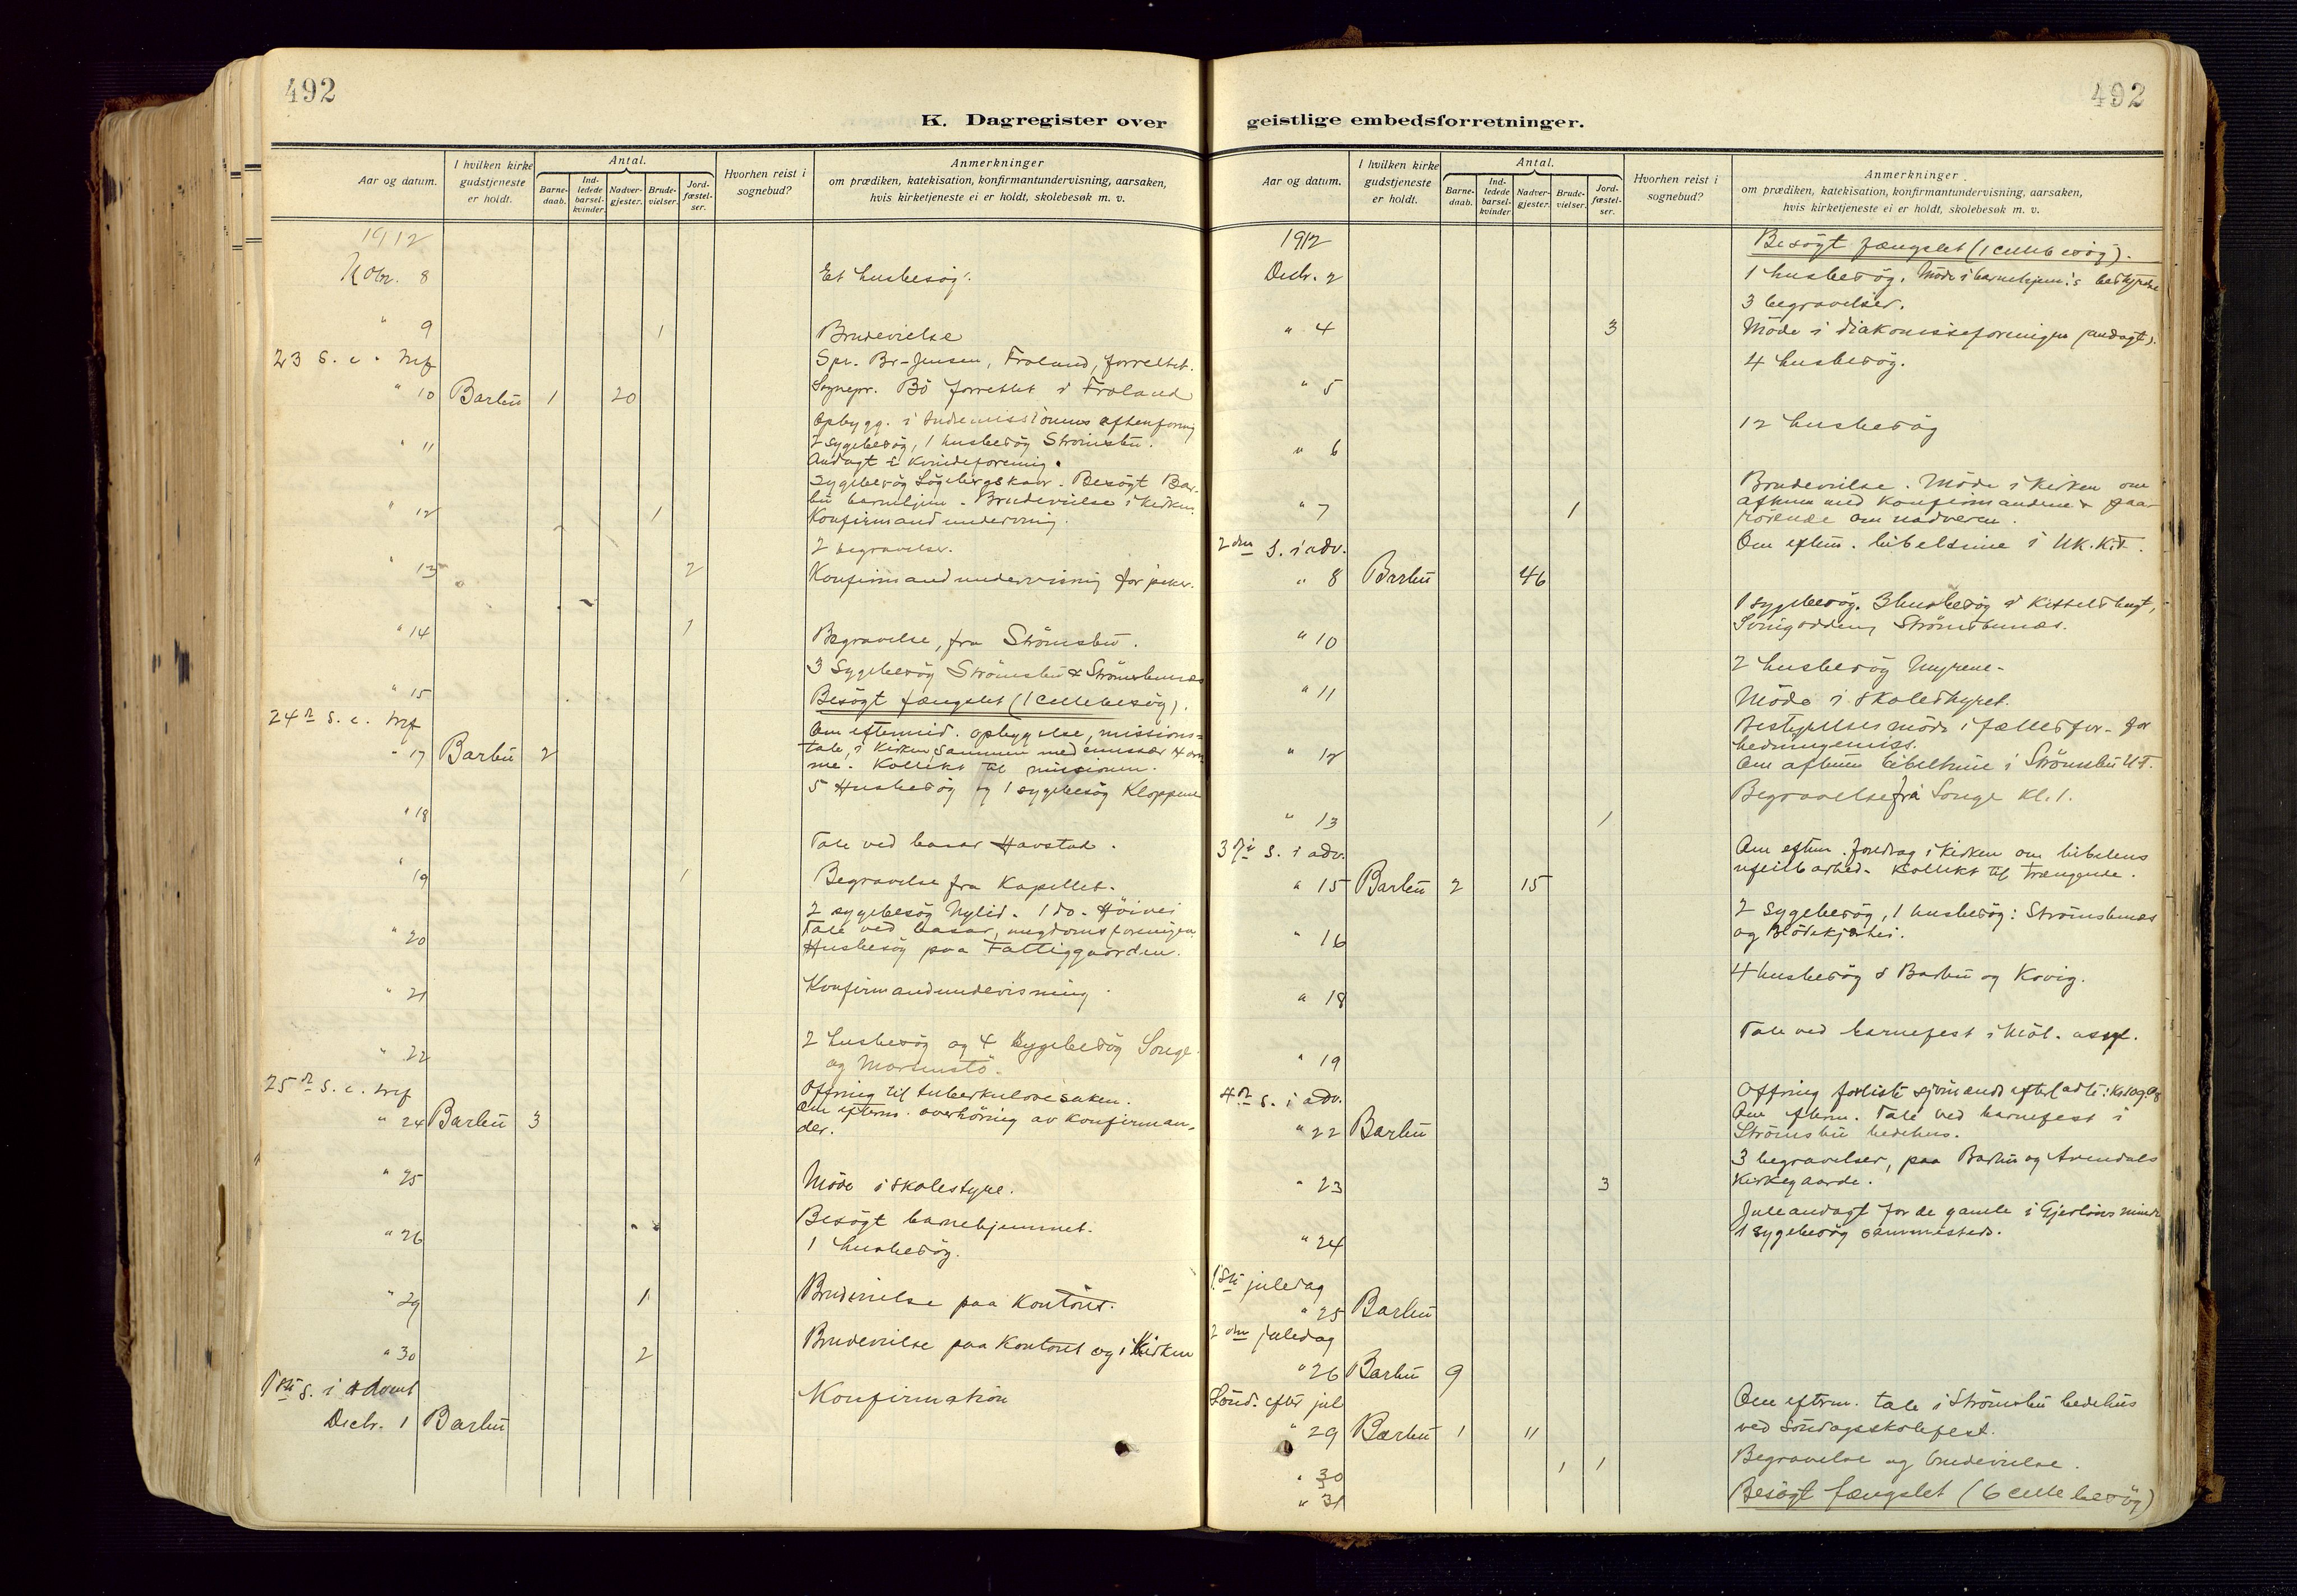 492
K. Dagregister over
Aar og datum.
I hvilken kirke gudstjeneste er holdt.
Antal.
Barne-daab.
Ind-ledede barsel-kvinder.
Nadver-gjester.
Brude-vielser.
Jord-fæstel-ser.
Hvorhen reist i sognebud?
Anmerkninger
om prædiken, katekisation, konfirmantundervisning, aarsaken,
hvis kirketjeneste ei er holdt, skolebesøk m. v.
1912
Novbr. 8 Et husbesøg.
" 9 1 Brudevielse
23 S. e. trf Spr. Br-Jensen, Froland, forrettet.
" 10 Barbu 1 20 Sognepr. Bö forrettet i Froland
Opbygg. i Indremissionens aftenforening
" 11 2 sygebesøg, 1 husbesøg Strömsbu.
Andagt i kvindeforening.
Sygebesøg Besøgt Bar-
" 12 1 bu barnehjem. Brudevielse i Kirken.
Konfirmandundervisning.
2 begravelser.
" 13 2 Konfirmandundervisning for piker.
" 14 1 Begravelse, fra Strömsbu.
3 Sygebesøg Strömsbu & Strömsbunæs
" 15 Besøgt fængslet (1 cellebesøg).
24de S. e. trf Om eftermid. opbyggelse, missions-
" 17 Barbu 2 tale, i Kirken sammen med
Kollekt til missionen.
5 Husbesøg og 1 sygebesøg Kloppene
" 18
Tale ved basar Havstad.
" 19 1 Begravelse fra Kapellet.
2 sygebesøg Nylid. 1 do. Höivei
" 20 Tale ved basar, ungdomsforeningen.
Husbesøg paa Fattiggaarden.
" 21 Konfirmandundervisning.
" 22 2 husbesøg og 4 sygebesøg Songe
og Mortenstö.
25de S. e. trf Offring til tuberkulosesaken.
" 24 Barbu 3 Om efterm. overhöring av konfirman-
der.
" 25 Möde i skolestyre.
" 26 Besøgt barnehjemmet.
1 husbesøg.
" 29 1 Brudevielse paa Kontoret.
" 30 2 Brudevielse paa Kontoret og i Kirken
1ste S. i Advent Konfirmation
Decbr. 1 Barbu
492
geistlige embedsforretninger.
Aar og datum.
I hvilken kirke gudstjeneste er holdt.
Antal.
Barne-daab.
Ind-ledede barsel-kvinder
Nadver-gjester.
Brude-vielser.
Jord-fæstel-ser.
Hvorhen reist i sognebud?
Anmerkninger
om prædiken, katekisation, konfirmantundervisning, aarsaken,
hvis kirketjeneste ei er holdt, skolebesøk m. v.
1912 Besøgt fængslet (1 cellebesøg).
Decbr. 2 1 husbesøg. Möde i barnehjem.s bestyrelse
3 begravelser.
" 4 3 Möde i diakonisseforeningen (andagt).
" 5 4 husbesøg.
" 6 12 husbesøg
Brudevielse. Möde i Kirken om
" 7 1 aftenen med konfirmandene & paa-
rörende om nadveren.
2den S. i adv. Om eftm. bibeltime i Uk. K.F.
" 8 Barbu 46
1 sygebesøg. 3 husbesøg i Kittelsbugt,
" 10 Strömsbunæs.
" 11 2 husbesøg Myrene.
Möde i skolestyret.
Bestyrelsesmöde i fællesfor. for
" 12 hedningemiss.
Om aftenen bibeltime i Strömsbu UF.
" 13 1 Begravelse fra Songe kl. 1.
3die S. i adv. Om eftm. foredrag i kirken om bibelens
" 15 Barbu 2 15 ufeilbarhed. Kollekt til trængende.
" 16 2 sygebesøg, 1 husbesøg: Strömsbunæs
og Blödekjærhei.
" 18 4 husbesøg i Barbu og Kovig.
" 19 Tale ved barnefest i Möl. asyl.
4de S. i adv. Offring forliste sjömænds efterladte:
" 22 Barbu Om efterm. Tale ved barnefest i
Strömsbu bedehus.
" 23 3 3 begravelser, paa Barbu og Arendals
Kirkegaarde.
" 24 Juleandagt for de gamle i Gjerlöws minde
1 sygebesøg sammesteds.
1ste juledag
" 25 Barbu
2den juledag
" 26 Barbu 9
Sönd. efter jul Om efterm. tale i Strömsbu bedehus
" 29 Barbu 1 11 ved söndagsskolefest.
" 30 1 1 Begravelse og brudevielse.
" 31 Besøgt fængslet (6 cellebesøg)